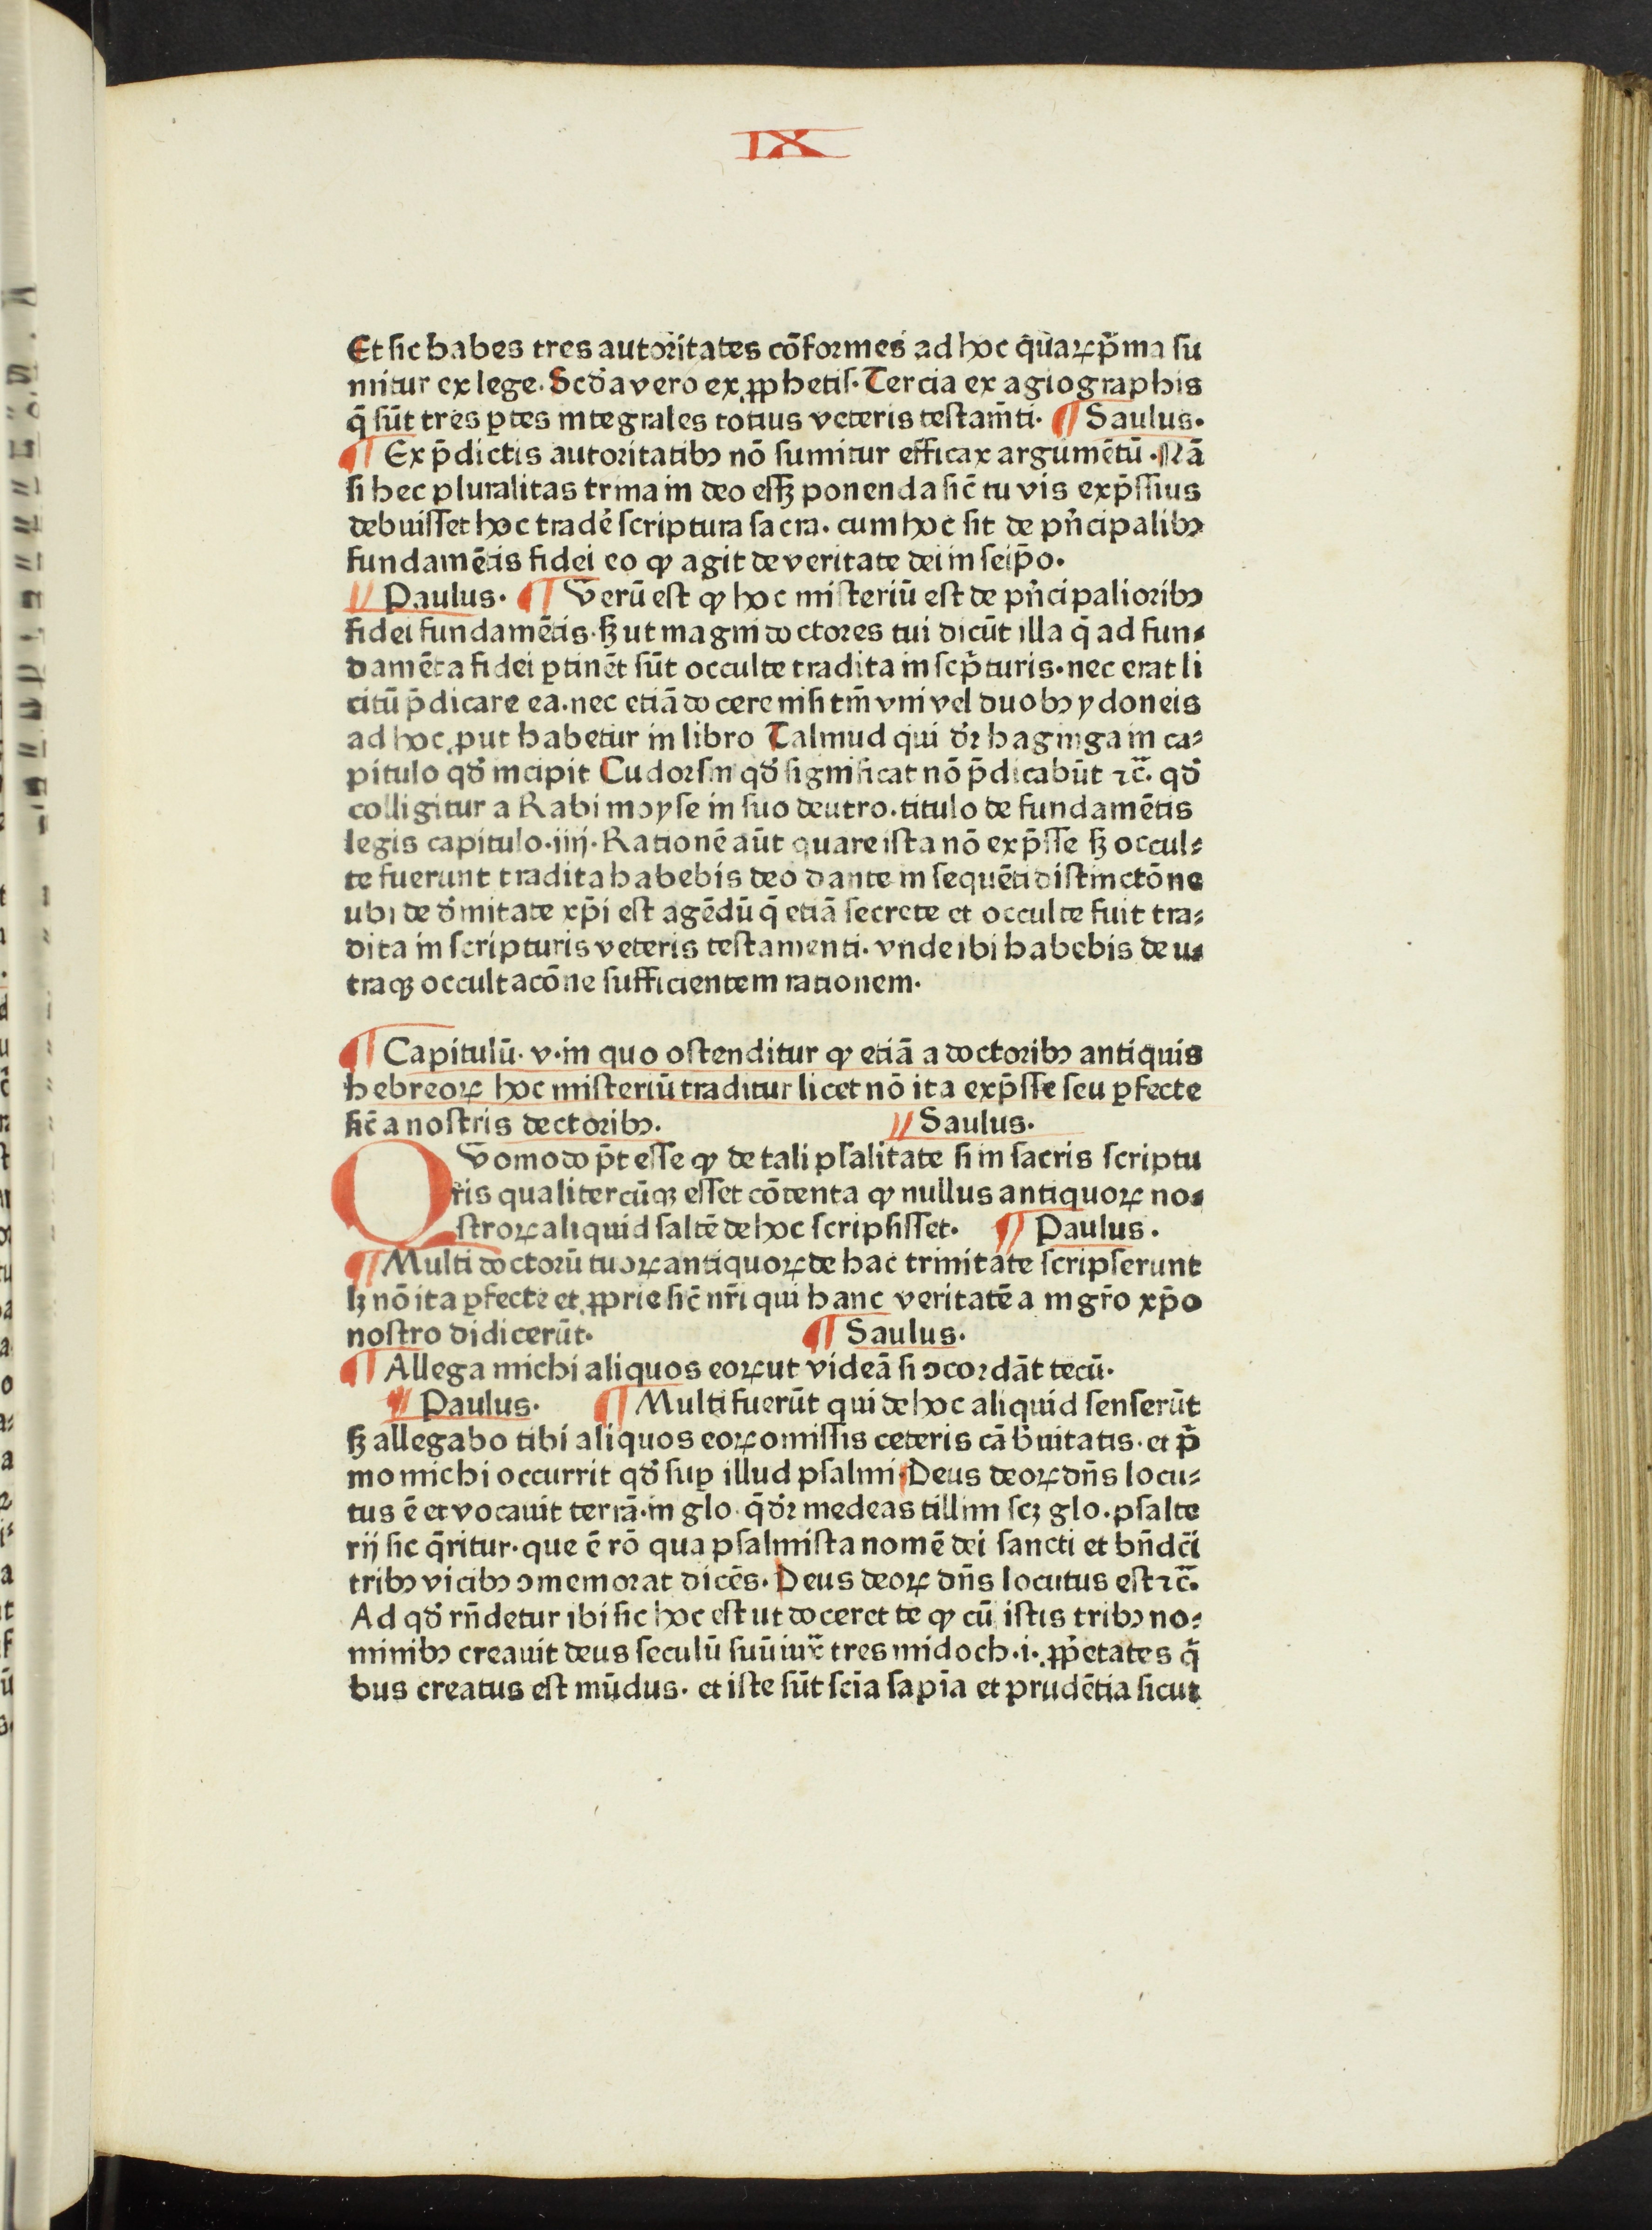 IX
Et sic habes tres autoritates cōformes ad hoc q̄uaꝝ p̄ma su
mitur ex lege. Scd̄a vero ex ꝓphetis. Tercia ex agiographis
q̄ sūt tres ꝑtes integrales totius veteris testam̄ti. ¶ Saulus.
¶ Ex p̄dictis autoritatibꝰ nō sumitur efficax argumētū. Nā
si hec pluralitas trina in deo essꝫ ponenda sic̄ tu vis exp̄ssius
debuisset hoc tradē scriptura sacra. cum hoc sit de pn̄cipalibꝰ
fundamētis fidei eo ꝙ agit de veritate dei in seip̄o.
// Paulus. ¶ Verū est ꝙ hoc misteriū est de pn̄cipalioribꝰ
fidei fundamētis. sꝫ ut magni doctores tui dicūt illa q̄ ad fun⸗
damēta fidei ꝑtinēt sūt occulte tradita in scp̄turis. nec erat li
citū p̄dicare ea. nec etiā docere nisi tm̄ vni vel duobꝰ ydoneis
ad hoc ꝓut habetur in libro Talmud qui dr̄ haginga in ca⸗
pitulo qd̄ incipit Cudorsin qd̄ significat nō p̄dicabūt ⁊c̄. qd̄
colligitur a Rabi moyse in suo deutro. titulo de fundamētis
legis capitulo. iiij. Rationē aūt quare ista nō exp̄sse sꝫ occul⸗
te fuerunt tradita habebis deo dante in sequēti distinctōne
ubi de d̄initate xp̄i est agēdū q̄ etiā secrete et occulte fuit tra⸗
dita in scripturis veteris testamenti. vnde ibi habebis de u⸗
traqꝫ occultacōne sufficientem rationem.
¶ Capitulū. v. in quo ostenditur ꝙ etiā a doctoribꝰ antiquis
hebreoꝝ hoc misteriū traditur licet nō ita exp̄sse seu ꝑfecte
sic̄ a nostris dectoribꝰ. // Saulus.
QVomodo p̄t esse ꝙ de tali psalitate si in sacris scriptu
ris qualitercūqꝫ esset cōtenta ꝙ nullus antiquoꝝ no⸗
stroꝝ aliquid saltē de hoc scripsisset. ¶ Paulus.
¶ Multi doctorū tuoꝝ antiquoꝝ de hac trinitate scripserunt
lꝫ nō ita ꝑfecte et ꝓprie sic̄ nr̄i qui hanc veritatē a mgr̄o xp̄o
nostro didicerūt. ¶ Saulus.
¶ Allega michi aliquos eoꝝ ut videā si ↄcordāt tecū.
¶ Paulus. ¶ Multi fuerūt qui de hoc aliquid senserūt
sꝫ allegabo tibi aliquos eoꝝ omissis ceteris cā b̄uitatis. et p̄
mo michi occurrit qd̄ suꝑ illud psalmi. Deus deoꝝ dn̄s locu⸗
tus ē et vocauit terrā. in glo. q̄ dr̄ medeas tillim scꝫ glo. psalte
rij sic q̄ritur. que ē rō qua psalmista nomē dei sancti et bn̄dc̄i
tribꝰ vicibꝰ ↄmemorat dicēs. Deus deoꝝ dn̄s locutus est ⁊c̄.
Ad qd̄ rn̄detur ibi sic hoc est ut doceret te ꝙ cū istis tribꝰ no⸗
minibꝰ creauit deus seculū suū iux̄ tres midoch. i. ꝓp̄etates q̄
bus creatus est mūdus. et iste sūt scīa sapīa et prudētia sicut